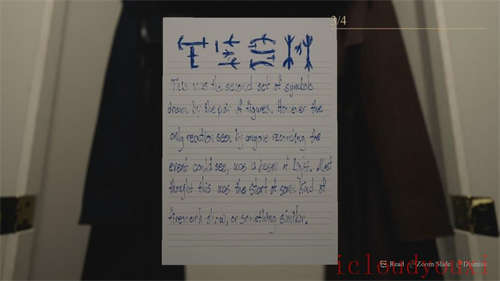 3/4
This was the second set of symbols
drawn by the pair of figures. However the
only reaction seen by anyone recording the
event could see, was a beam of light. Most
thought this was the start of some kind of
firework show, or something similar.
Read Zoom Slide Dismiss
icloudyouxi